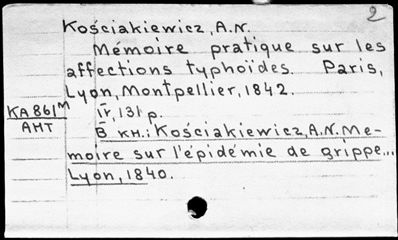 2
Kościakiewicz, A.N.
Mémoire pratique sur les
affections typhoïdes. Paris,
Lyon, Montpellier, 1842.
KA 861ᴹ
АНТ
IV, 131 p.
В кн.: Kościakiewicz, A.N. Me-
moire sur l'épidémie de grippe...
Lyon, 1840.